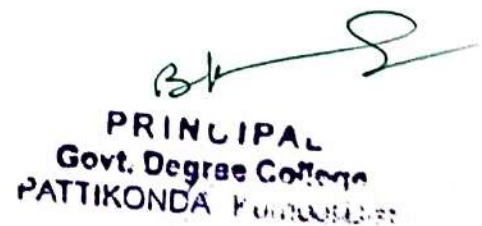 PRINCIPAL
Govt. Degree College
PATTIKONDA